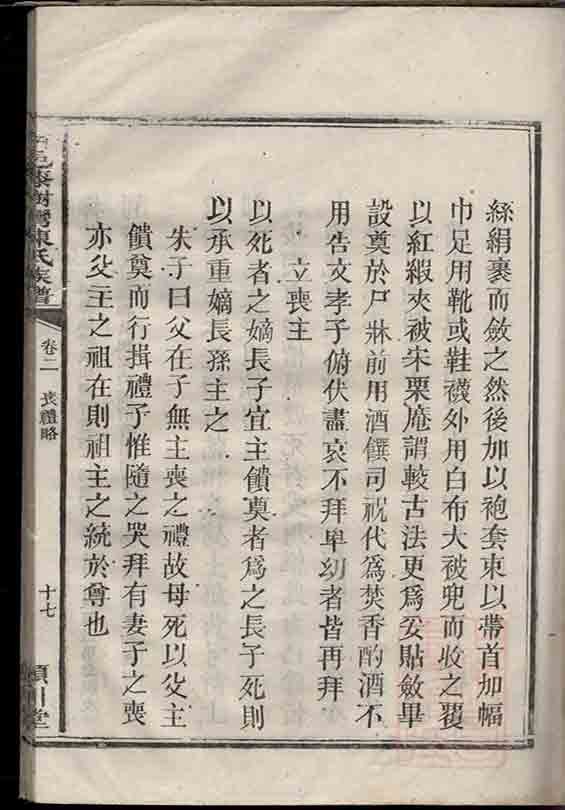 絲絹裹而斂之然後加以袍套束以帶首加幅
巾足用靴或鞋襪外用白布大被兜而收之覆
以紅緞夾被朱栗庵謂較古法更爲妥貼斂畢
設奠於尸牀前用酒饌司祝代爲焚香酌酒不
用告文孝子俯伏盡哀不拜卑幼者皆再拜
立喪主
以死者之嫡長子宜主饋奠者爲之長子死則
以承重嫡長孫主之
朱子曰父在子無主喪之禮故母死以父主
饋奠而行揖禮子惟隨之哭拜有妻子之喪
亦父主之祖在則祖主之統於尊也
陳氏族譜
卷二
喪禮略
十七
潁川堂